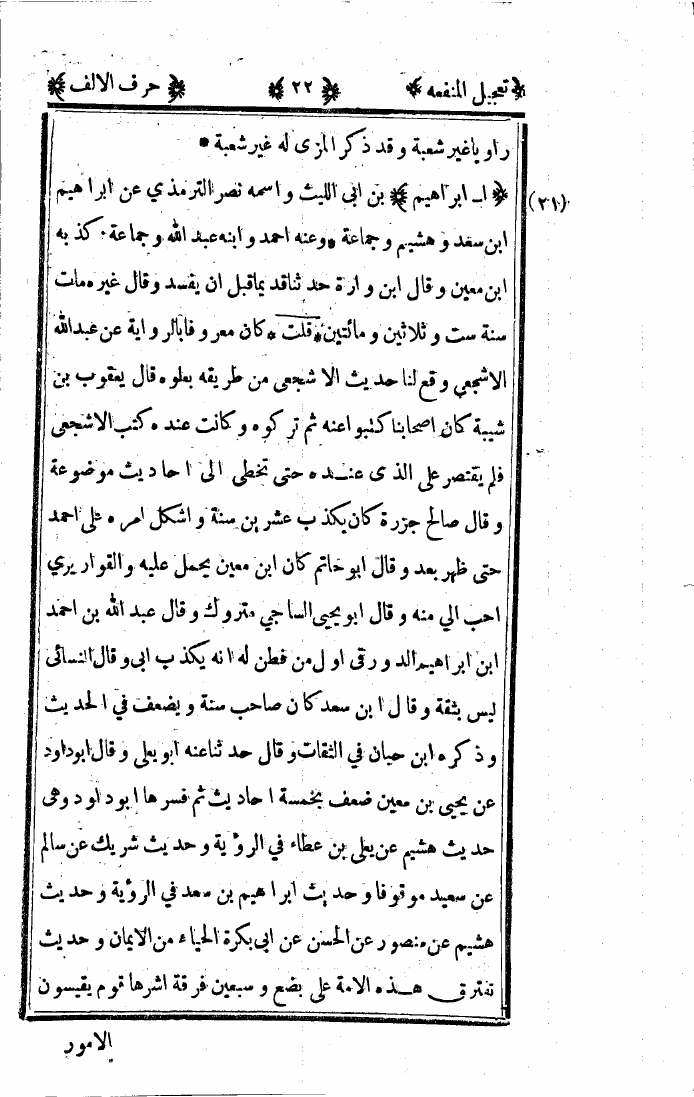 ﴿ تعجيل المنفعه ﴾ ﴿ ٢٢ ﴾ ﴿ حرف الالف ﴾
راويا غير شعبة وقد ذكر المزى له غير شعبة *
(٢١) ﴿ ا ـ ابراهيم ﴾ بن ابى الليث واسمه نصر الترمذي عن ابراهيم
ابن سعد وهشيم وجماعة * وعنه احمد وابنه عبد الله وجماعة . كذبه
ابن معين وقال ابن وارة حدثنا قديما قبل ان يفسد وقال غيره مات
سنة ست وثلاثين ومائتين * قلت * كان معروفا بالرواية عن عبدالله
الاشجعي وقع لنا حديث الاشجعى من طريقه بعلو * قال يعقوب بن
شيبة كان اصحابنا كتبوا عنه ثم تركوه وكانت عنده كتب الاشجعى
فلم يقتصر على الذى عنـده حتى تخطى الى احاديث موضوعة
وقال صالح جزرة كان يكذب عشرين سنة واشكل امره على احمد
حتى ظهر بعد وقال ابو حاتم كان ابن معين يحمل عليه والقواريري
احب الي منه وقال ابو يحيى الساجي متروك وقال عبد الله بن احمد
ابن ابراهيم الدورقى اول من فطن له انه يكذب ابى وقال النسائى
ليس بثقة وقال ابن سعد كان صاحب سنة ويضعف في الحديث
وذكره ابن حبان في الثقات وقال حدثنا عنه ابو يعلى وقال ابو داود
عن يحيى بن معين ضعف بخمسة احاديث ثم فسرها ابو داود وهى
حديث هشيم عن يعلى بن عطاء في الرؤية وحديث شريك عن سالم
عن سعيد موقوفا وحديث ابراهيم بن سعد في الرؤية وحديث
هشيم عن منصور عن الحسن عن ابى بكرة الحياء من الايمان وحديث
تفترق هـذه الامة على بضع وسبعين فرقة اشرها قوم يقيسون
الامور